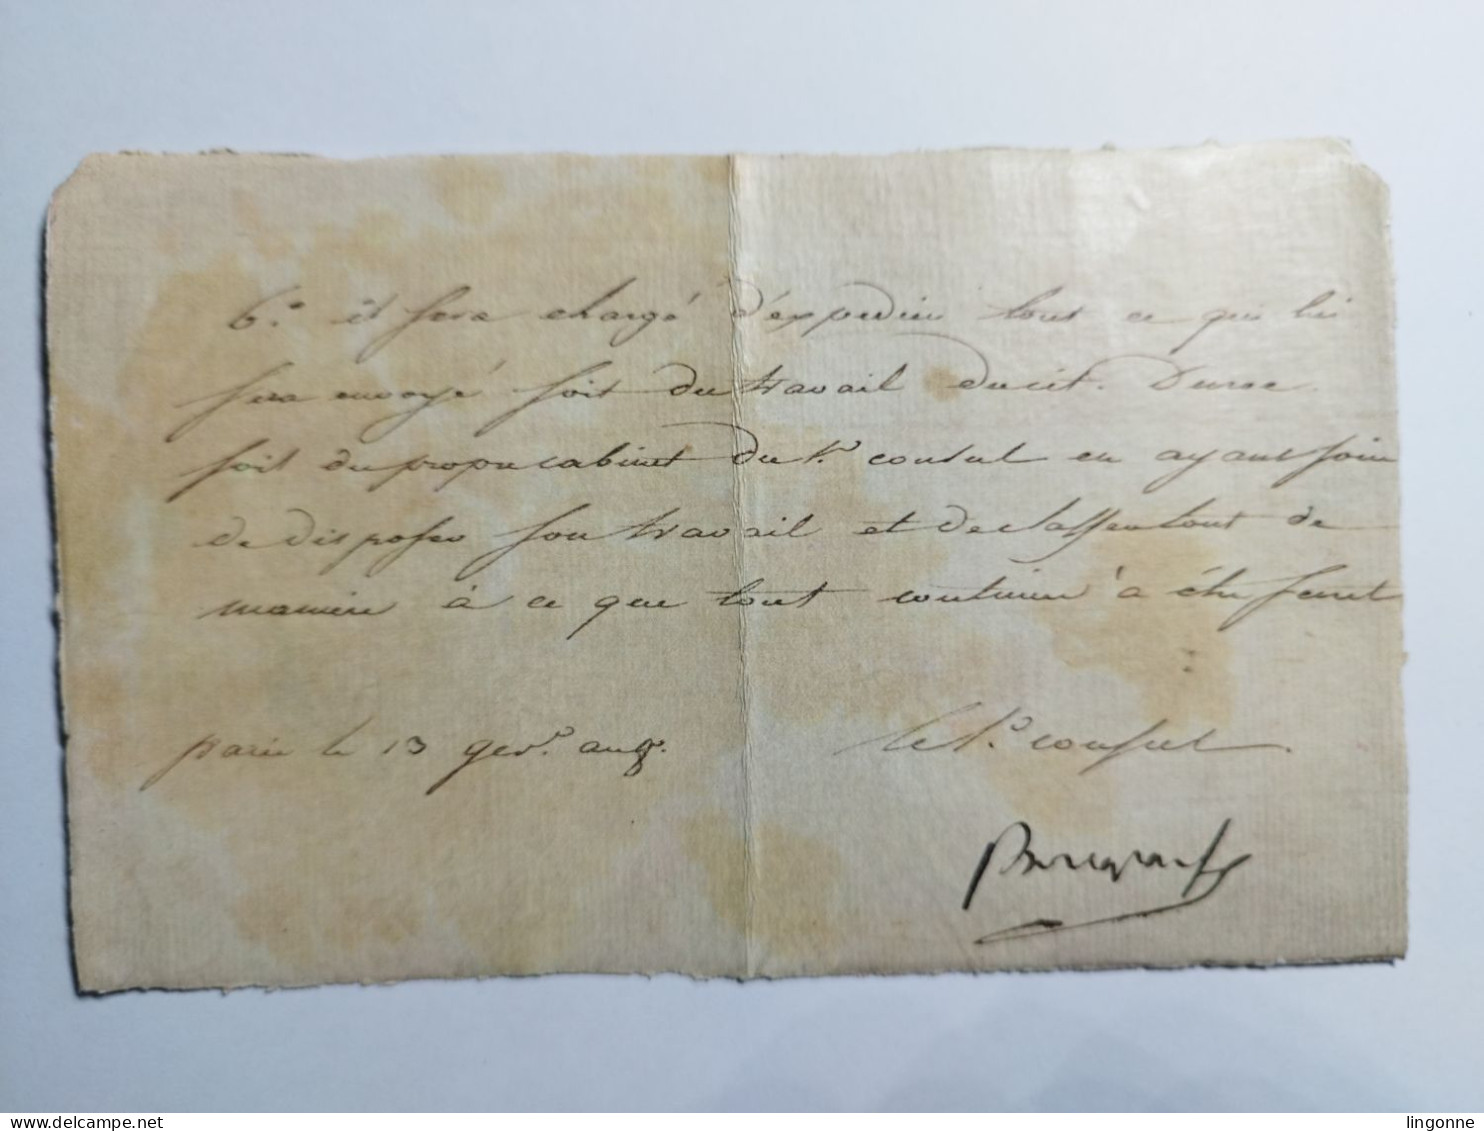 6.° il sera chargé d'expedier tout ce qui lui
sera envoyé soit du travail du cit. Duroc
soit du propre cabinet du 1.er consul en ayant soin
de disposer son travail et de classer tout de
maniere à ce que tout continue à être secret
paris le 13 ger.l an 8.
le 1.er consul
Bonaparte
delcampe.net
lingonne